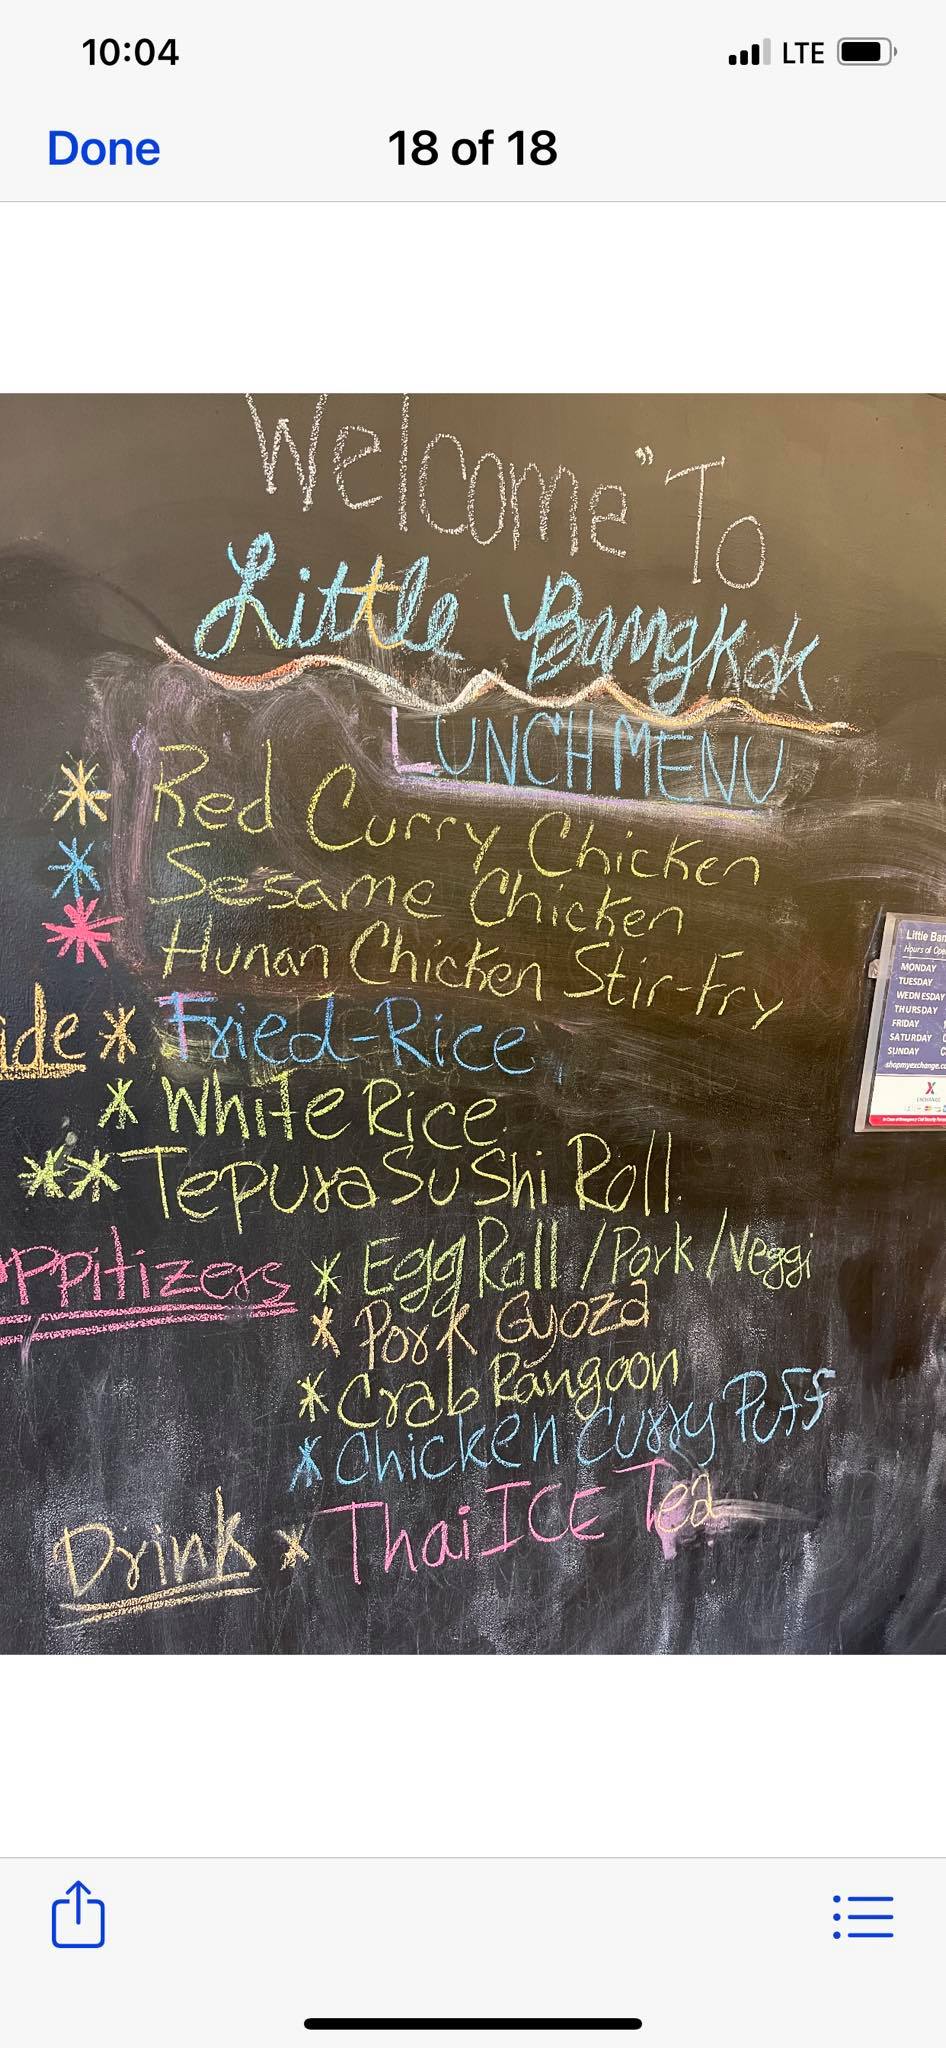 10:04
LTE
Done
18 of 18
Welcome "To
Little Bangkok
LUNCH MENU
* Red Curry Chicken
* Sesame Chicken
* Hunan Chicken Stir-Fry
ide * Fried-Rice
* White Rice
** Tepura SuShi Roll
ppitizers * Egg Roll / Pork / Veggi
* Pork Gyoza
* Crab Rangoon
* Chicken Curry Puff
Drink * Thai ICE Tea
Little Ban
Hours of Ope
MONDAY
TUESDAY
WEDNESDAY
THURSDAY
FRIDAY
SATURDAY
SUNDAY
shopmyexchange.co
X
EXCHANGE